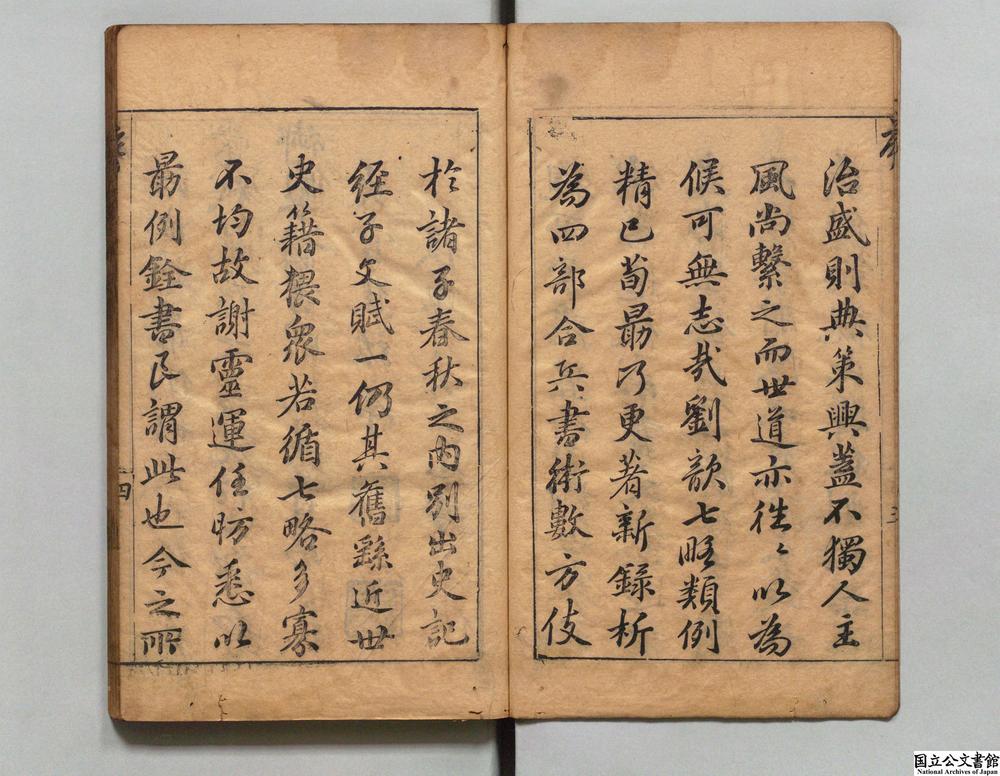 治盛則典策興蓋不獨人主
風尚繫之而世道亦往〻以為
候可無志哉劉歆七略類例
精已荀勗乃更著新錄析
為四部合兵書術數方伎
於諸子春秋之內別出史記
經子文賦一仍其舊繇近世
史籍猥衆若循七略多寡
不均故謝靈運任昉悉以
勗例銓書良謂此也今之所
四
国立公文書館
National Archives of Japan